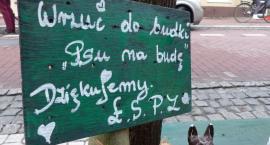 Wrzuć do budki
„Psu na budę”
Dziękujemy.
Ł. S. P. Z